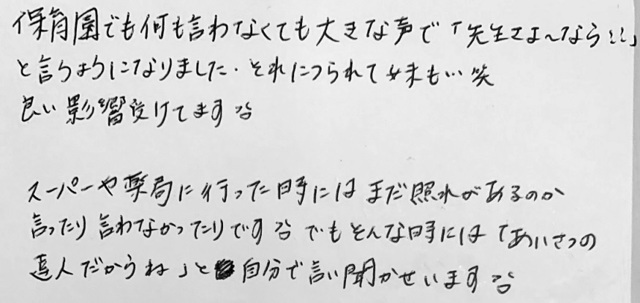 保育園でも何も言わなくても大きな声で「先生さよ〜なら!!」
と言うようになりました。それにつられて妹も…笑
良い影響受けてます
スーパーや薬局に行った時にはまだ照れがあるのか
言ったり言わなかったりです でもそんな時には「あいさつの
達人だからね」と自分で言い聞かせいます